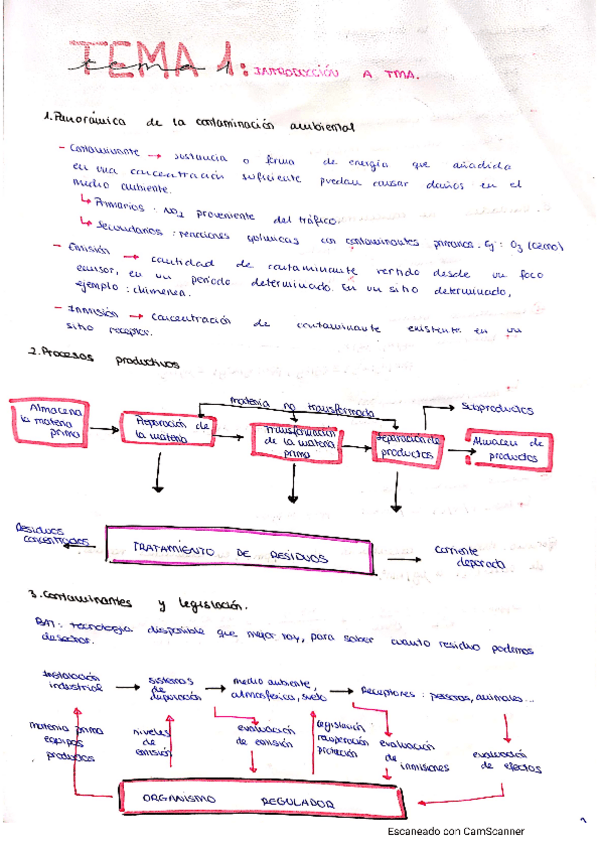 TEMA 1: INTRODUCCIÓN A TMA.
tema
1. Panorámica de la contaminación ambiental
- Contaminante → sustancia o forma de energía que añadida
en una concentración suficiente puedan causar daños en el
medio ambiente.
↳ Primarios: NO₂ proveniente del tráfico.
↳ Secundarios: reacciones químicas con contaminantes primarios. Ej: O₃ (ozono)
- Emisión → cantidad de contaminante vertido desde un foco
emisor, en un periodo determinado. En un sitio determinado,
ejemplo: chimenea.
- Inmisión → concentración de contaminante existente en un
sitio receptor.
2. Procesos productivos
materia no transformada
Subproductos
Almacena
la materia
prima
Preparación de
la materia
Transformación
de la materia
prima
Separación de
productos
Almacen de
productos
Residuos
concentrados
TRATAMIENTO DE RESIDUOS
corriente
depurada
3. Contaminantes y legislación.
tecnología disponible que mejor hay, para saber cuanto residuo podemos
desechar.
Instalación
industrial
sistemas
de
depuración
medio ambiente,
atmosférica, suelo
Receptores: personas, animales...
materia prima
equipos
productos
niveles
de
emisión
evaluación
de emisión
legislación
recuperación
protección
evaluación
de
inmisiones
evaluación
de efectos
ORGANISMO REGULADOR
Escaneado con CamScanner